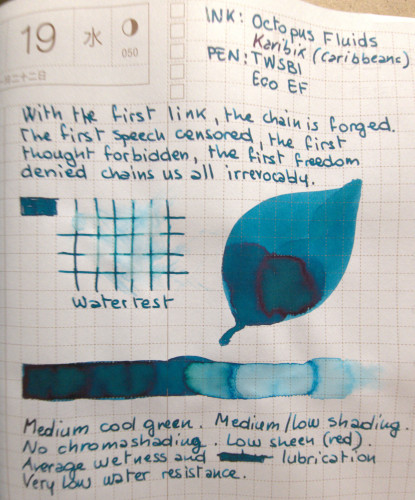 19 水
050
二十二日
INK: Octopus Fluids
Karibik (Caribbeanc)
PEN: TWSBI
Eco EF
With the first link, the chain is forged.
The first speech censored, the first
thought forbidden, the first freedom
denied chains us all irrevocably.
Watertest
Medium cool green. Medium/low shading.
No chromashading. Low sheen (red).
Average wetness and lubrication
Very low water resistance.